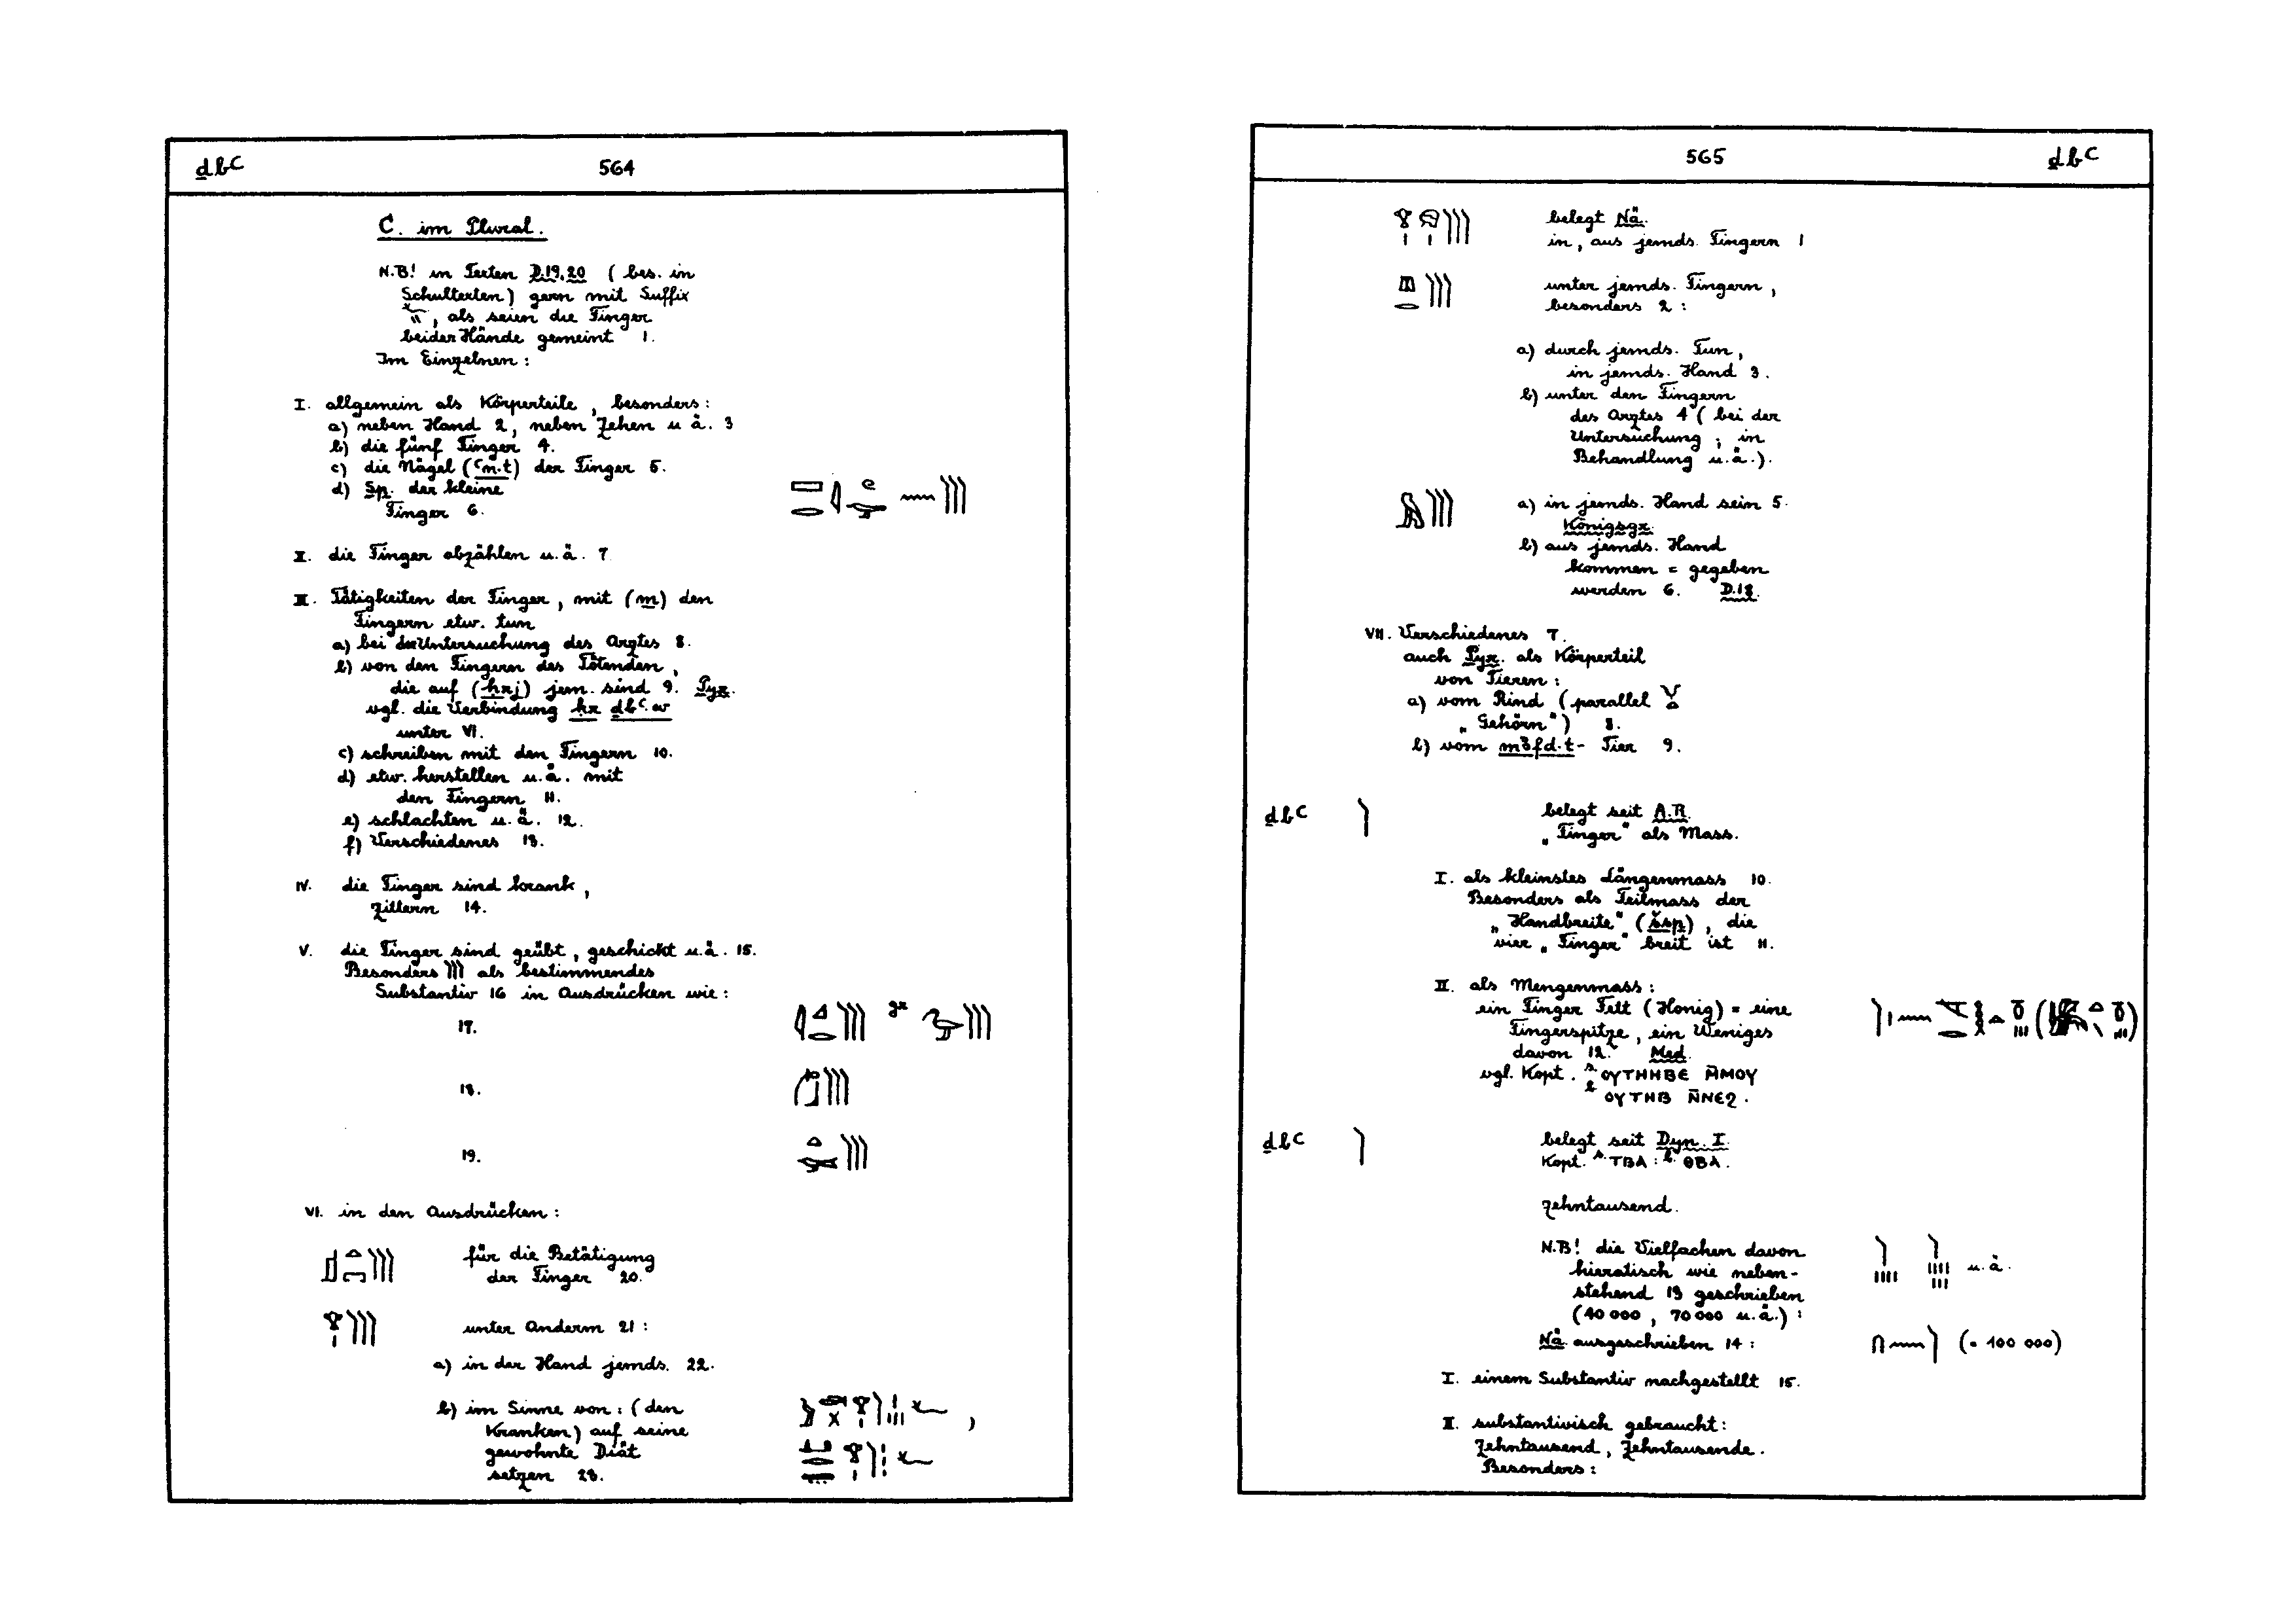 ḏbꜥ 564
C. im Plural.
N.B! in Texten D.19.20 (bes. in
Schultexten) gern mit Suffix
, als seien die Finger
beider Hände gemeint 1.
Im Einzelnen:
I. allgemein als Körperteile, besonders:
a) neben Hand 2, neben Zehen u ä. 3
b) die fünf Finger 4.
c) die Nägel (ꜥn.t) der Finger 5.
d) Sp. der kleine
Finger 6.
II. die Finger abzählen u.ä. 7
III. Tätigkeiten der Finger, mit (m) den
Fingern etw. tun
a) bei der Untersuchung des Arztes 8.
b) von den Fingern des Tötenden,
die auf (ḥrj) jem. sind 9. Pyr.
vgl. die Verbindung ḥr ḏbꜥ.w
unter VI.
c) schreiben mit den Fingern 10.
d) etw. herstellen u.ä. mit
den Fingern 11.
e) schlachten u.ä. 12.
f) Verschiedenes 13.
IV. die Finger sind krank,
zittern 14.
V. die Finger sind geübt, geschickt u.ä. 15.
Besonders 𓂭𓂭𓂭 als bestimmendes
Substantiv 16 in Ausdrücken wie:
17. gr
18.
19.
VI. in den Ausdrücken:
für die Betätigung
der Finger 20.
𓁷𓏤𓂭𓂭𓂭 unter Anderm 21:
a) in der Hand jemds. 22.
b) im Sinne von: (den
Kranken) auf seine
gewohnte Diät
setzen 23.
565 ḏbꜥ
𓁷𓏤𓁶𓏤𓂭𓂭𓂭 belegt Nä.
in, aus jemds. Fingern 1
𓌨𓂋𓂭𓂭𓂭 unter jemds. Fingern,
besonders 2:
a) durch jemds. Tun,
in jemds. Hand 3.
b) unter den Fingern
des Arztes 4 (bei der
Untersuchung, in
Behandlung u.ä.).
𓅓𓂭𓂭𓂭 a) in jemds. Hand sein 5.
Königsgr.
b) aus jemds. Hand
kommen = gegeben
werden 6. D.18.
VII. Verschiedenes 7.
auch Pyr. als Körperteil
von Tieren:
a) vom Rind (parallel
„Gehörn“) 8.
b) vom mꜣfd.t-Tier 9.
ḏbꜥ 𓂭 belegt seit A.R.
„Finger“ als Mass.
I. als kleinstes Längenmass 10.
Besonders als Teilmass der
„Handbreite“ (šsp), die
vier „Finger“ breit ist 11.
II. als Mengenmass:
ein Finger Fett (Honig) = eine
Fingerspitze, ein Weniges
davon 12. Med.
vgl. Kopt. s. ⲟⲩⲧⲏⲏⲃⲉ ⲙ̄ⲙⲟⲩ
b ⲟⲩⲧⲏⲃ ⲛ̄ⲛⲉϩ.
ḏbꜥ 𓂭 belegt seit Dyn. I.
Kopt. s. ⲧⲃⲁ: b. ⲑⲃⲁ.
zehntausend.
N.B! die Vielfachen davon
hieratisch wie neben-
stehend 13 geschrieben u.ä.
(40 000, 70 000 u.ä.):
Nä ausgeschrieben 14: 𓎆𓈖𓂭 (= 100 000)
I. einem Substantiv nachgestellt 15.
II. substantivisch gebraucht:
Zehntausend, Zehntausende.
Besonders: